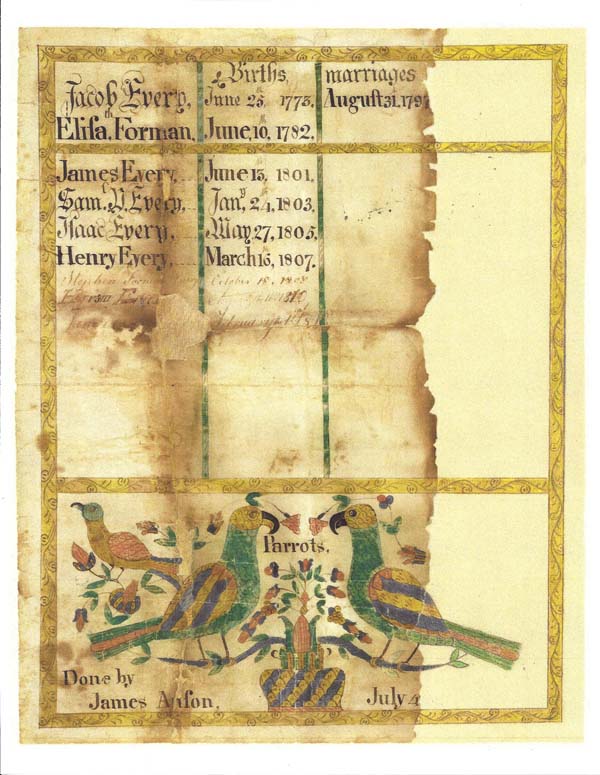 Births, marriages
Jacob Every, June 25, 1773, August 31, 179
Elisa.th Forman, June, 10, 1782,
James Every, June 13, 1801,
Sam.l Every, Jan.y 24, 1803,
Isaac Every, May 27, 1805,
Henry Every, March 15, 1807,
Stephen October 18, 1808
Parrots,
Done by
James July 4